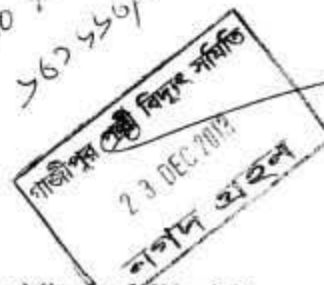 ১৬১ ১১০/
গাজীপুর পল্লী বিদ্যুৎ সমিতি
23 DEC 2013
নগদ গ্রহন